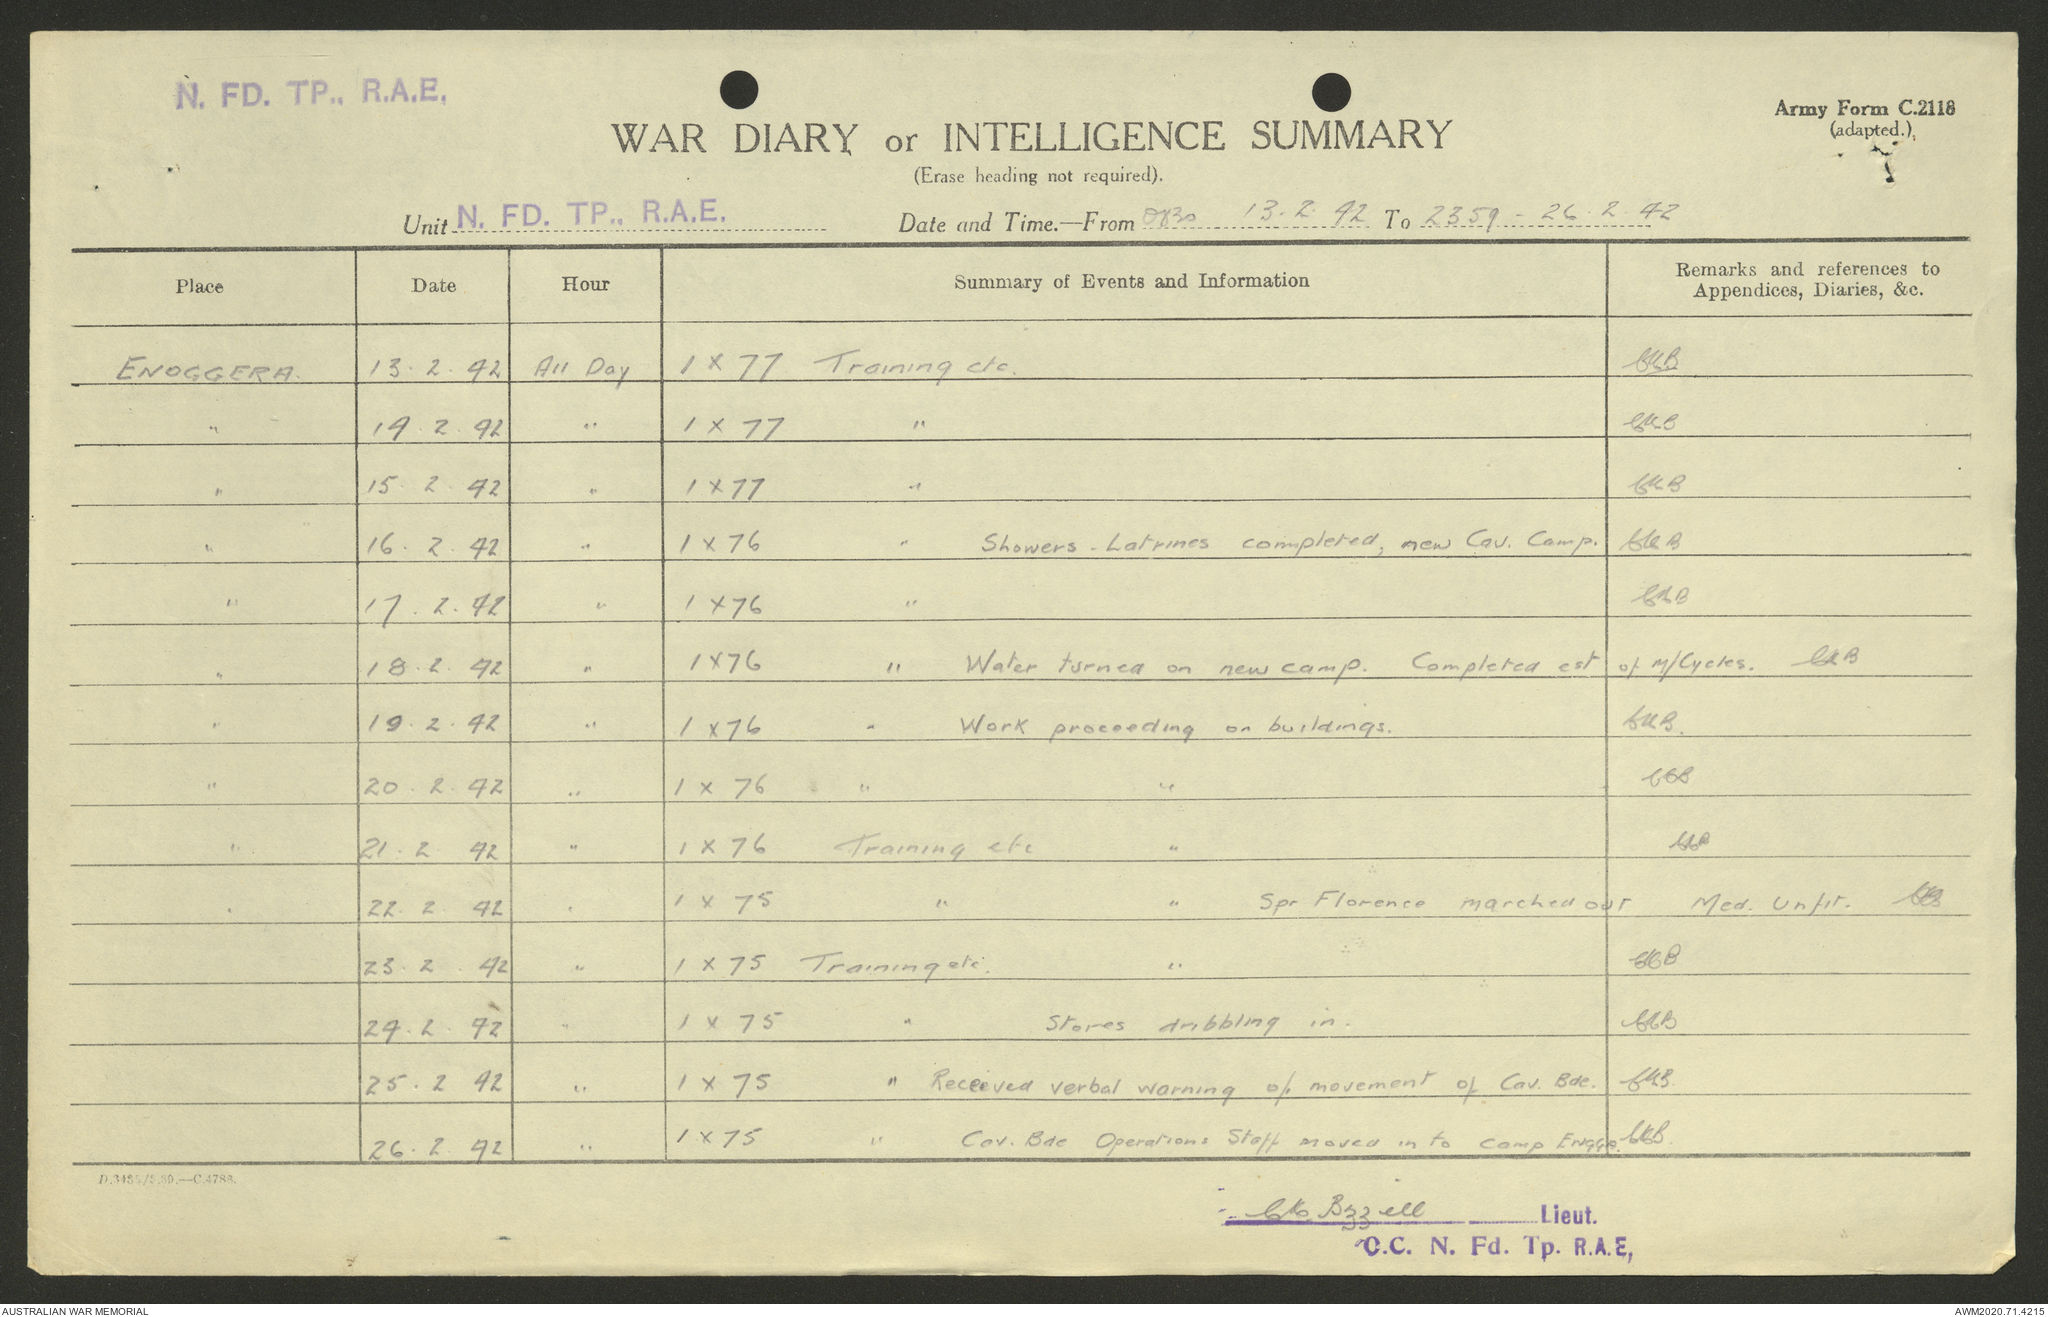 N. FD. TP., R.A.E.
Army Form C.2118
(adapted.)
WAR DIARY or INTELLIGENCE SUMMARY
(Erase heading not required).
Unit N. FD. TP., R.A.E. Date and Time.—From 0830 13.2.42 To 2359 - 26.2.42
Place Date Hour Summary of Events and Information Remarks and references to Appendices, Diaries, &c.
ENOGGERA. 13.2.42 All Day 1 x 77 Training etc.
" 14.2.42 " 1 x 77 "
" 15.2.42 " 1 x 77 "
" 16.2.42 " 1 x 76 " Showers - Latrines completed, new Cav. Camp.
" 17.2.42 " 1 x 76 "
" 18.2.42 " 1 x 76 " Water turned on new camp. Completed est of M/Cycles.
" 19.2.42 " 1 x 76 " Work proceeding on buildings.
" 20.2.42 " 1 x 76 " "
" 21.2.42 " 1 x 76 Training etc "
" 22.2.42 " 1 x 75 " " Spr Florence marched out Med. Unfit.
23.2.42 " 1 x 75 Training etc. "
24.2.42 " 1 x 75 " Stores dribbling in.
25.2.42 " 1 x 75 " Received verbal warning of movement of Cav. Bde.
26.2.42 " 1 x 75 " Cav. Bde Operations Staff moved in to camp Engga.
Lieut.
O.C. N. Fd. Tp. R.A.E.
AUSTRALIAN WAR MEMORIAL
AWM2020.71.4215